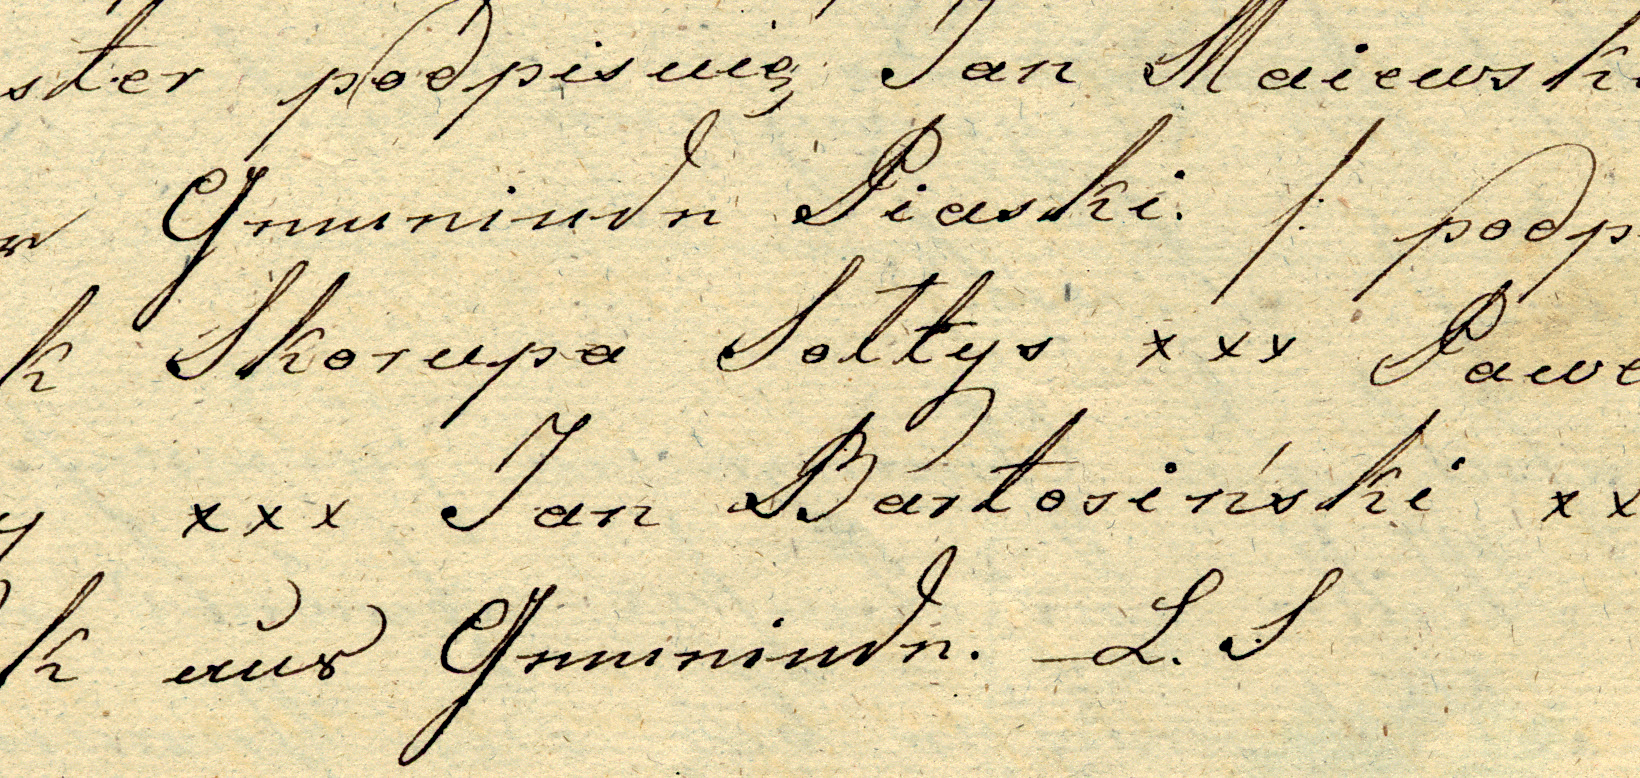 ster podpisuię Jan Maiewski
Gmeinde Piaski. /: podp
k Skorupa Sołtys xxx Pawe
y xxx Jan Bartosiński xx
k aus Gmeinde. L. S